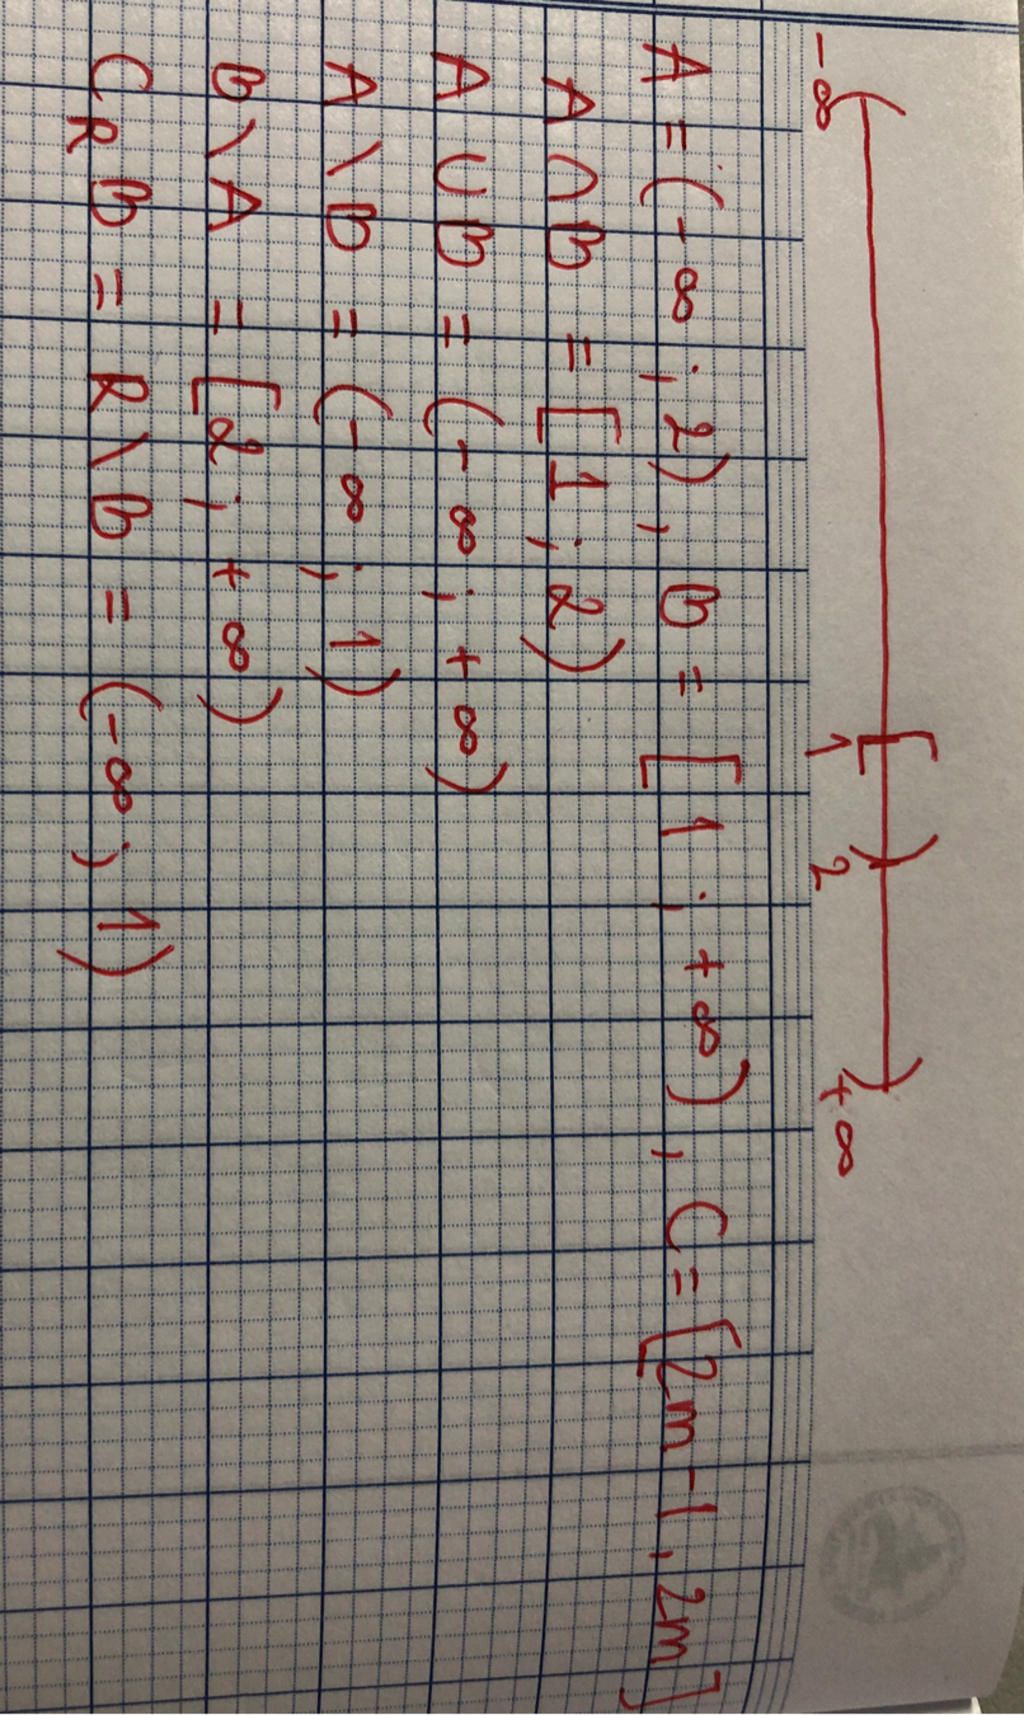 -∞ 1 2 +∞
A = (-∞; 2), B = [1; +∞), C = [2m-1; 2m]
A ∩ B = [1; 2)
A ∪ B = (-∞; +∞)
A \ B = (-∞; 1)
B \ A = [2; +∞)
C_R B = R \ B = (-∞; 1)